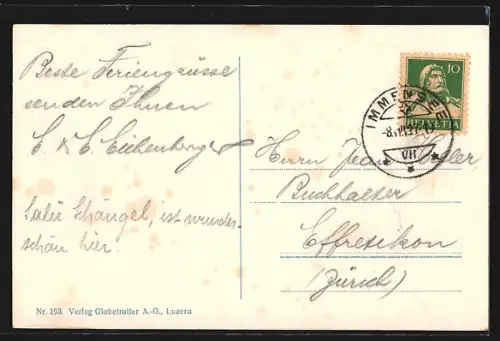 Beste Feriengrüsse
senden Ihnen
E. & E. Eichenberger
Salü Schängel, ist wunder-
schön hier.
Nr. 193. Verlag Globetrotter A.-G., Luzern
10
HELVETIA
IMMENSEE
VII
Herrn Jean
Buchhalter
Effretikon
(Zürich)